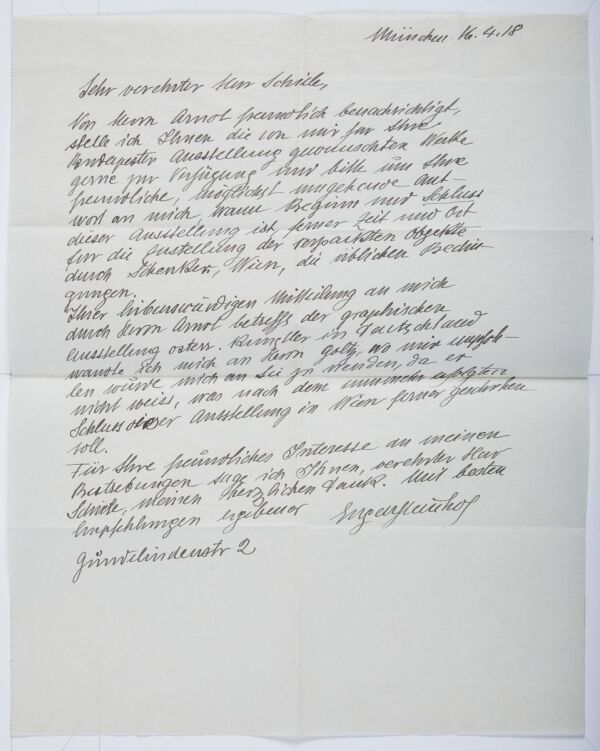 München 16.4.18
Sehr verehrter Herr Schiele,
Von Herrn Arnot freundlich benachrichtigt,
stelle ich Ihnen die von mir für Ihre
Budapester Ausstellung gewünschten Werke
gerne zur Verfügung und bitte um Ihre
freundliche, möglichst umgehende Ant-
wort an mich, wann Beginn und Schluss
dieser Ausstellung ist, ferner Zeit und Ort
für die Zustellung der verpackten Objekte
durch Schenker, Wien, die üblichen Bedin
gungen.
Ihrer liebenswürdigen Mitteilung an mich
durch Herrn Arnot betreffs der graphischen
Ausstellung österr. Künstler in Deutschland
wandte ich mich an Herrn Goltz, wo mir empfoh-
len wurde mich an Sie zu wenden, da er
nicht weiss, was nach dem nunmehr erfolgten
Schluss dieser Ausstellung in Wien ferner geschehen
soll.
Für Ihr freundliches Interesse an meinen
Bestrebungen sage ich Ihnen, verehrter Herr
Schiele, meinen herzlichen Dank. Mit besten
Empfehlungen ergebener
Gundelindenstr 2